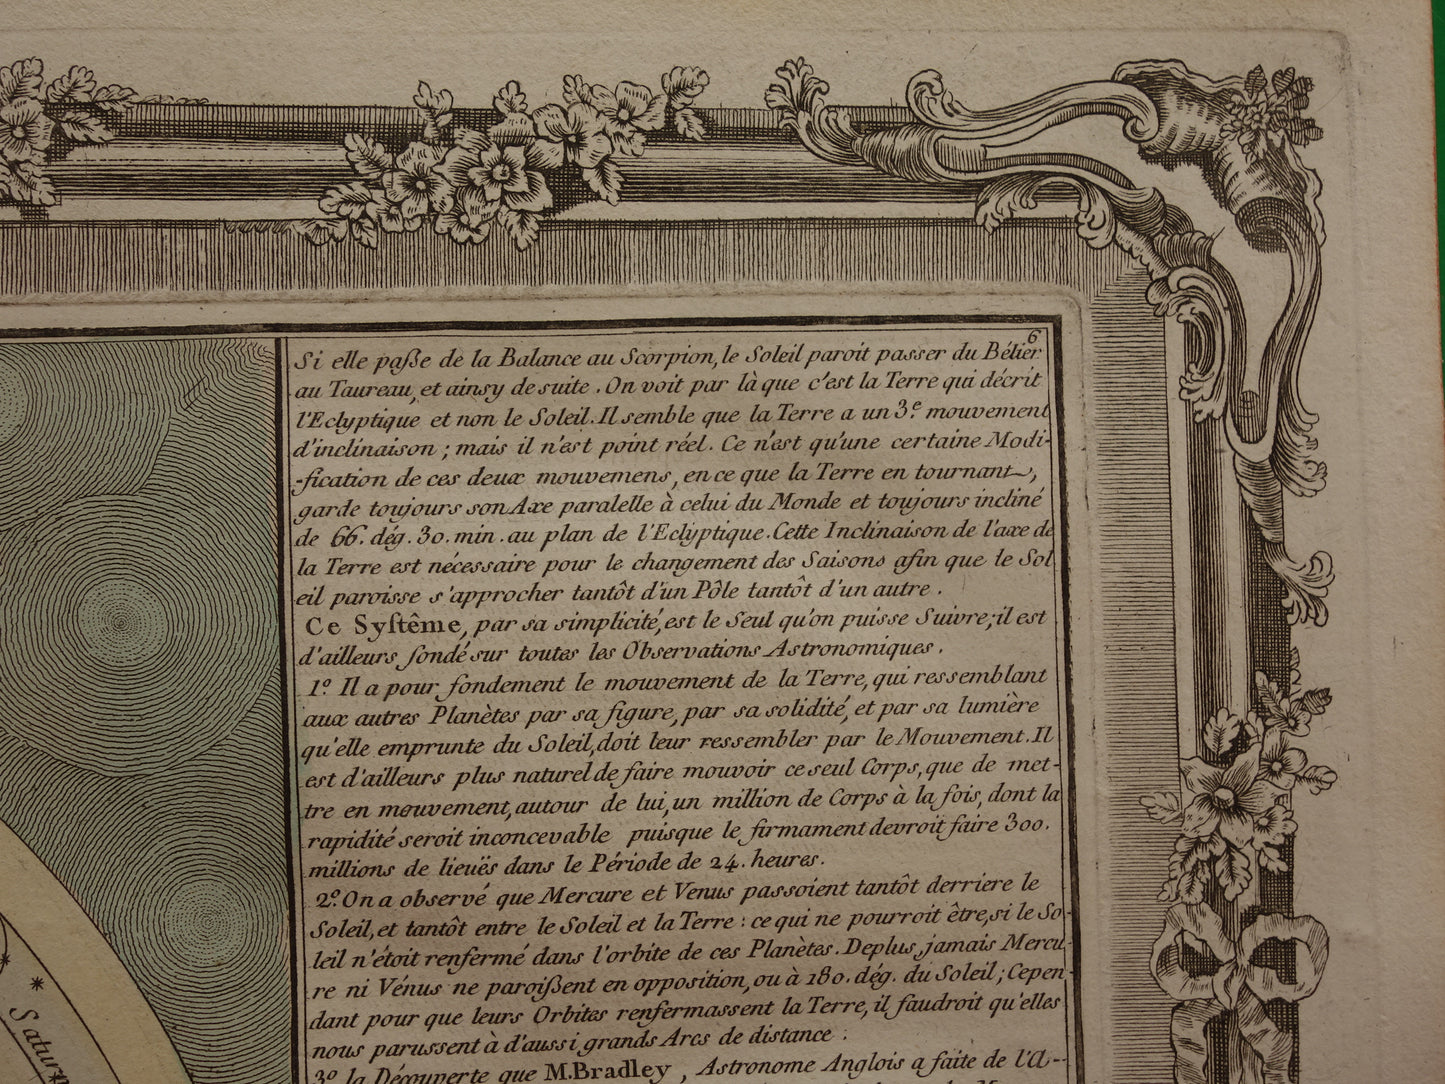 6
Si elle paſse de la Balance au Scorpion, le Soleil paroit passer du Bélier
au Taureau, et ainsy de suite. On voit par là que c'est la Terre qui décrit
l'Eclyptique et non le Soleil. Il semble que la Terre a un 3.e mouvement
d'inclinaison; mais il n'est point réel. Ce n'est qu'une certaine Modi-
-fication de ces deux mouvemens, en ce que la Terre en tournant,
garde toujours son Axe paralelle à celui du Monde et toujours incliné
de 66. dég. 30. min. au plan de l'Eclyptique. Cette Inclinaison de l'axe de
la Terre est nécessaire pour le changement des Saisons afin que le Sol
eil paroisse s'approcher tantôt d'un Pôle tantôt d'un autre.
Ce Syſtême, par sa simplicité, est le Seul qu'on puisse Suivre; il est
d'ailleurs fondé sur toutes les Observations Astronomiques.
1.º Il a pour fondement le mouvement de la Terre, qui ressemblant
aux autres Planètes par sa figure, par sa solidité, et par sa lumière
qu'elle emprunte du Soleil, doit leur ressembler par le Mouvement. Il
est d'ailleurs plus naturel de faire mouvoir ce seul Corps, que de met-
tre en mouvement, autour de lui, un million de Corps à la fois, dont la
rapidité seroit inconcevable puisque le firmament devroit faire 300.
millions de lieuës dans le Période de 24. heures.
2.º On a observé que Mercure et Venus passoient tantôt derriere le
Soleil, et tantôt entre le Soleil et la Terre: ce qui ne pourroit être, si le So-
leil n'étoit renfermé dans l'orbite de ces Planètes. De plus, jamais Mercu-
re ni Vénus ne paroiſsent en opposition, ou à 180. dég. du Soleil; Cepen-
dant pour que leurs Orbites renfermassent la Terre, il faudroit qu'elles
nous parussent à d'aussi grands Arcs de distance.
3º la Découverte que M. Bradley, Astronome Anglois a faite de l'A-
Satur